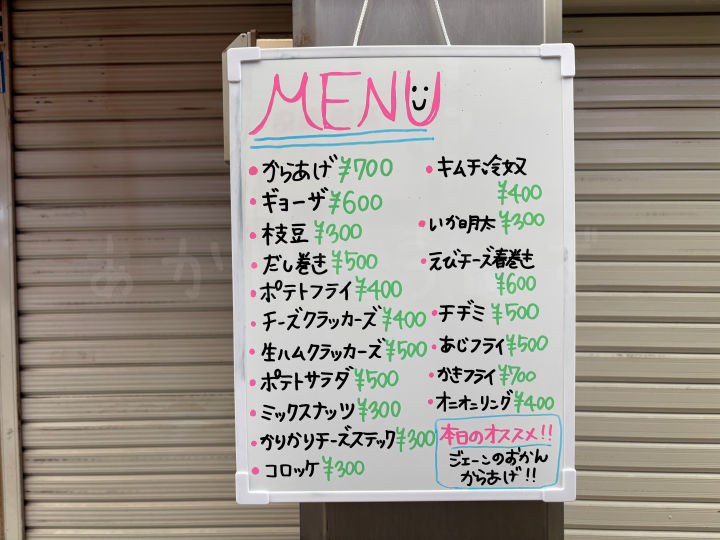 MENU
からあげ ¥700
ギョーザ ¥600
枝豆 ¥300
だし巻き ¥500
ポテトフライ ¥400
チーズクラッカーズ ¥400
生ハムクラッカーズ ¥500
ポテトサラダ ¥500
ミックスナッツ ¥300
かりかりチーズステック ¥300
コロッケ ¥300
キムチ冷奴
¥400
いか明太 ¥300
えびチーズ春巻き
¥600
チヂミ ¥500
あじフライ ¥500
かきフライ ¥700
オニオニリング ¥400
本日のオススメ!!
ジェーンのおかん
からあげ!!